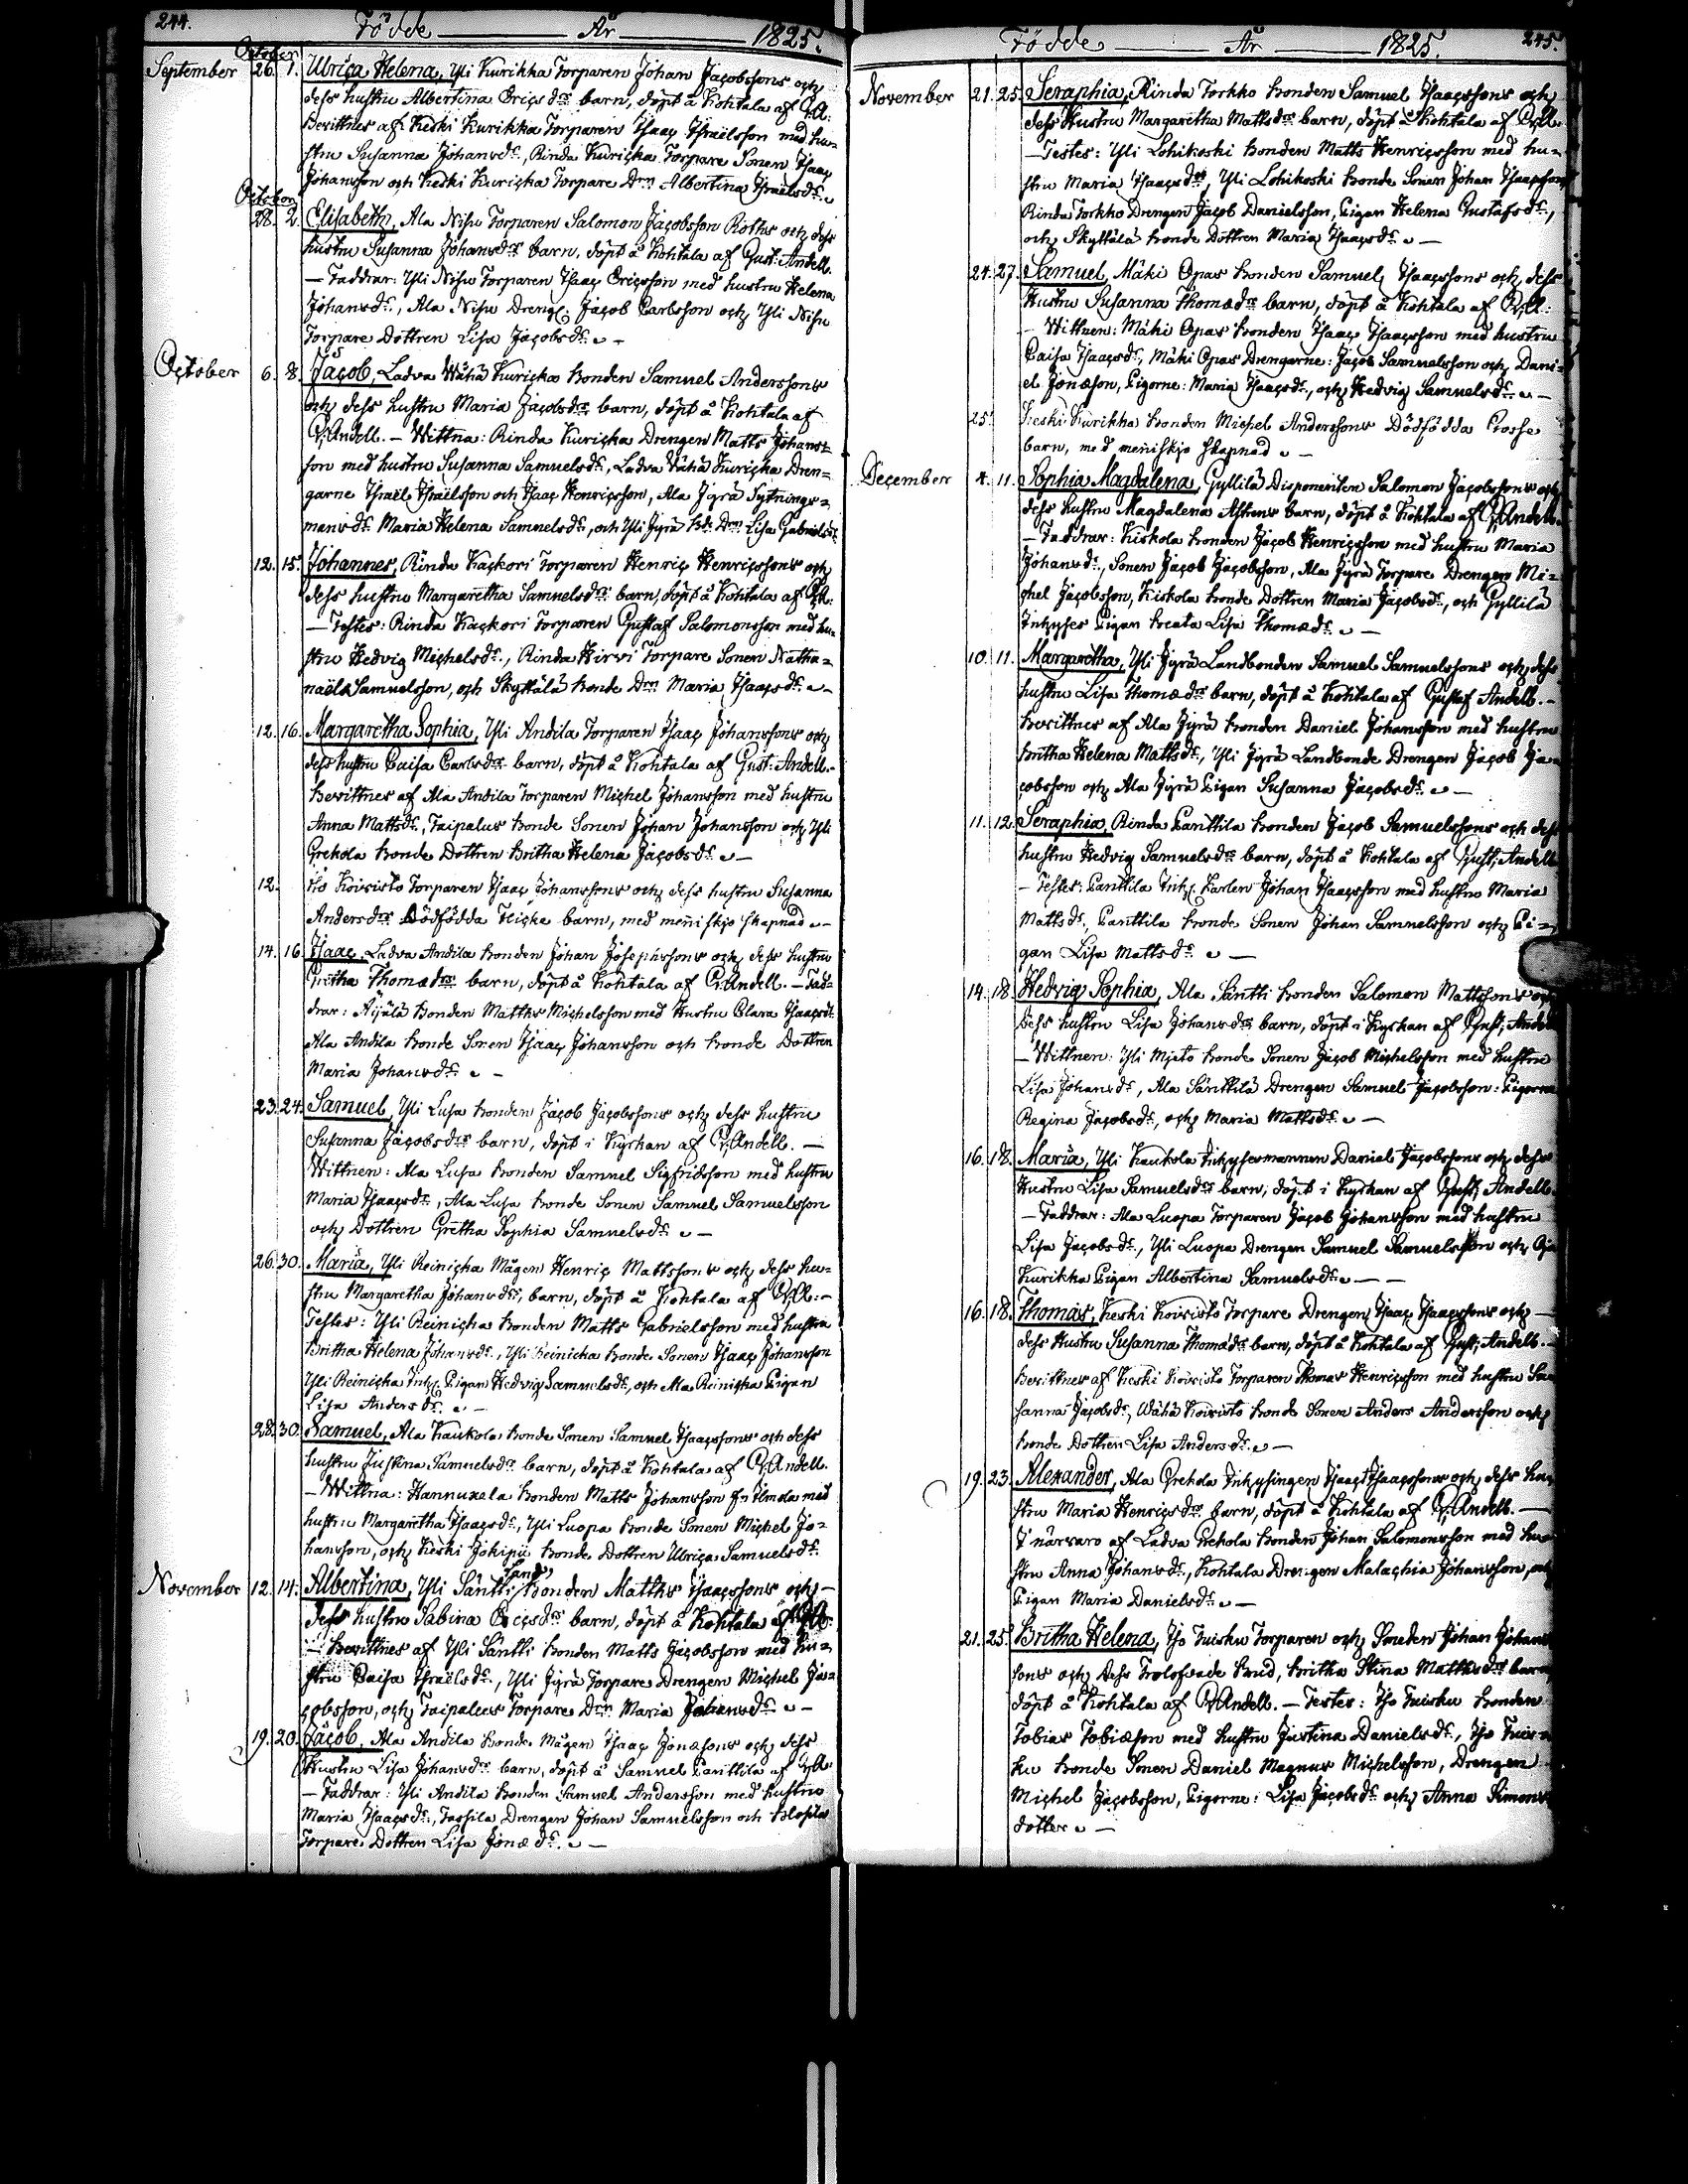 244. Födde År 1825.
October
September 26. 1. Ulriça Helena, Yli Kurikka Torparen Johan Jaçobssons och
dess hustru Albertina Eriçs drs barn, döpt å Kohtala af G. A.
Bevittnes af Keski Kurikka Torparen Isaaç Israëlsson med hu-
stru Susanna Johans dr, Rinda Kuriçka Torpare Sonen Isaaç
Johansson och Keski Kuriçka Torpare Drn Albertina Israëls dr
October
28. 2. Elisabeth, Ala Nisu Torparen Salomon Jaçobsson Roths och dess
hustru Susanna Johans drs barn, döpt å Kohtala af Gust: Andell.
— Faddrar: Yli Nisu Torparen Isaaç Eriçsson med hustru Helena
Johans dr, Ala Nisu Dreng: Jaçob Carlsson och Yli Nisu
Torpare Dottren Lisa Jaçobs dr
October 6. 8. Jaçob, Ladva Wähä Kuriçka Bonden Samuel Anderssons
och dess hustru Maria Jaçobs drs barn, döpt å Kohtala af
G. Andell. — Wittna: Rinda Kuriçka Drengen Matts Johans-
son med hustru Susanna Samuels dr, Ladva Wähä Kuriçka Dren-
garne Israël Israëlsson och Isaaç Henriçsson, Ala Jyrä Sytnings-
mans dr Maria Helena Samuels dr, och Yli Jyrä Bde Drn Lisa Gabriels dr
12. 15. Johannes, Rinda Kaçkori Torparen Henriç Henriçssons och
dess hustru Margaretha Samuels drs barn, döpt å Kohtala af G. A.
— Testes: Rinda Kaçkori Torparen Gustaf Salomonsson med hu-
stru Hedvig Michels dr, Rinda Hirvi Torpare Sonen Natha-
naël Samuelsson, och Skyttälä Bonde Drn Maria Isaaçs dr
12. 16. Margaretha Sophia, Yli Andila Torparen Isaaç Johanssons och
dess hustru Caisa Carls drs barn, döpt å Kohtala af Gust: Andell.
Bevittnes af Ala Andila Torparen Michel Johansson med hustru
Anna Matts dr, Taipalus Bonde Sonen Johan Johansson och Yli
Grekola Bonde Dottren Britha Helena Jaçobs dr
12. Iso Koivisto Torparen Isaaç Johanssons och dess hustru Susanna
Anders drs Dödfödda Fliçke barn, med meniskjo skapnad
14. 16. Isaaç, Ladva Andila Bonden Johan Josephssons och dess hustru
Gretha Thomæ drs barn, döpt å Kohtala af G. Andell. — Fad-
drar: Äijälä Bonden Matths Michelsson med Hustru Clara Isaaçs dr
Ala Andila Bonde Sonen Isaaç Johansson och Bonde Dottren
Maria Johans dr
23. 24. Samuel, Yli Lusa Bonden Jaçob Jaçobssons och dess hustru
Susanna Jaçobs drs barn, döpt i Kyrkan af G. Andell. —
Wittnen: Ala Lusa Bonden Samuel Sigfridsson med hustru
Maria Isaaçs dr, Ala Lusa Bonde Sonen Samuel Samuelsson
och Dottren Gretha Sophia Samuels dr
26. 30. Maria, Yli Reiniçka Mågen Henriç Mattssons och dess hu-
stru Margaretha Johans drs, barn, döpt å Kohtala af G. A. —
Testes: Yli Reiniçka Bonden Matts Gabrielsson med hustru
Britha Helena Johans dr, Yli Reinicka Bonde Sonen Isaaç Johansson
Yli Reiniçka Inh: Pigan Hedvig Samuels dr, och Ala Reiniçka Pigan
Lisa Anders dr
28. 30. Samuel, Ala Kaukola Bonde Sonen Samuel Isaaçssons och dess
hustru Justina Samuels drs barn, döpt å Kohtala af G. Andell.
— Wittna: Hannuxela Bonden Matts Johansson fr Ilmola med
hustru Margaretha Isaaçs dr, Yli Luopa Bonde Sonen Michel Jo-
hansson, och Keski Jokipii Bonde Dottren Ulriça Samuels dr
Land
November 12. 14. Albertina, Yli Säntti Bonden Matths Isaaçssons och
dess hustru Sabina Eriçs drs barn, döpt å Kohtala af G. A.
— Bevittnes af Yli Säntti Bonden Matts Jaçobsson med hu-
stru Caisa Israëls dr, Yli Jyrä Torpare Drengen Michel Ja-
çobsson, och Taipalus Torpare Drn Maria Johans dr
19. 20. Jaçob, Ala Andila Bonde Mågen Isaaç Jonæsons och dess
Hustru Lisa Johans drs barn, döpt å Samuel Panttila af G. A.
— Faddrar: Yli Andila Bonden Samuel Andersson med hustru
Maria Isaaçs dr, Drengen Johan Samuelsson och
Torpare Dottren Lisa Jonæ dr
Födde År 1825. 245.
November 21. 25. Seraphia, Rinda Torkko Bonden Samuel Isaaçssons och
dess Hustru Margaretha Matts drs barn, döpt å Kohtala af G. A.
— Testes: Yli Lohikoski Bonden Matts Henriçsson med hu-
stru Maria Isaaçs dr, Yli Lohikoski Bonde Sonen Johan Isaaçsson
Rinda Torkko Drengen Jaçob Danielsson, Pigan Helena Gustafs dr,
och Skyttälä Bonde Dottren Maria Isaaçs dr
24. 27. Samuel, Mäki Opas Bonden Samuel Isaaçssons och dess
Hustru Susanna Thomæ drs barn, döpt å Kohtala af G. A.
— Wittnen: Mäki Opas Bonden Isaaç Isaaçsson med hustru
Caisa Isaaçs dr, Mäki Opas Drengarne: Jaçob Samuelsson och Dani-
el Jonæson, Pigorne: Maria Isaaçs dr, och Hedvig Samuels dr
25. Keski Kurikka Bonden Michel Anderssons Dödfödda Gosse
barn, med meniskjo skapnad
December 4. 11. Sophia Magdalena, Gyllilä Disponenten Salomon Jaçobssons och
dess hustru Magdalena Astrens barn, döpt å Kohtala af G. Andell.
— Faddrar: Kiskola Bonden Jaçob Henriçsson med hustru Maria
Johans dr, Sonen Jaçob Jaçobsson, Ala Jyrä Torpare Drengen Mi-
chel Jaçobsson, Kiskola Bonde Dottren Maria Jaçobs dr, och Gyllilä
Inhyses Pigan Breata Lisa Thomæ dr
10. 11. Margaretha, Yli Jyrä Landbonden Samuel Samuelssons och dess
hustru Lisa Thomæ drs barn, döpt å Kohtala af Gustaf Andell. —
Bevittnes af Ala Jyrä Bonden Daniel Johansson med hustru
Britha Helena Matts dr, Yli Jyrä Landbonde Drengen Jaçob Ja-
çobsson och Ala Jyrä Pigan Susanna Jaçobs dr
11. 12. Seraphia, Rinda Panttila Bonden Jaçob Samuelssons och dess
hustru Hedvig Samuels drs barn, döpt å Kohtala af Gust: Andell
— Testes: Panttila Inh: Karlen Johan Isaaçsson med hustru Maria
Matts dr, Panttila Bonde Sonen Johan Samuelsson och Pi-
gan Lisa Matts dr
14. 18. Hedvig Sophia, Ala Säntti Bonden Salomon Mattssons och
dess hustru Lisa Johans drs barn, döpt i Kyrkan af Gust: Andell
— Wittnen: Yli Mjeto Bonde Sonen Jaçob Michelsson med hustru
Lisa Johans dr, Ala Sänttilä Drengen Samuel Jaçobsson: Pigorne
Regina Jaçobs dr, och Maria Matts dr
16. 18. Maria, Yli Kaukola Inhysesmannen Daniel Jaçobssons och dess
Hustru Lisa Samuels drs barn, döpt i Kyrkan af Gust: Andell.
— Faddrar: Ala Luopa Torparen Jaçob Johansson med hustru
Lisa Jaçobs dr, Yli Luopa Drengen Samuel Samuelsson och Oja
Kurikka Pigan Albertina Samuels dr
16. 18. Thomas, Keski Koivisto Torpare Drengen Isaaç Isaaçssons och
dess Hustru Susanna Thomæ drs barn, döpt å Kohtala af Gust: Andell.
Bevittnes af Keski Koivisto Torparen Thomas Henriçsson med hustru Su-
sanna Jaçobs dr, Wähä Koivisto Bonde Sonen Anders Andersson och
Bonde Dottren Lisa Anders dr
19. 23. Alexander, Ala Grekola Inhysingen Isaaç Isaaçssons och dess hu-
stru Maria Henriçs drs barn, döpt å Kohtala af G. Andell. —
I närvaro af Ladva Grekola Bonden Johan Salomonsson med hu-
stru Anna Johans dr, Kohtala Drengen Malachia Johansson, och
Pigan Maria Daniels dr
21. 25. Britha Helena, Iso Tuisku Torparen och Smeden Johan Johans-
sons och dess Trolofvade Brud, Britha Stina Matths drs barn
döpt å Kohtala af G. Andell. — Testes: Iso Tuisku Bonden
Tobias Tobiæson med hustru Justina Daniels dr, Iso Tuis-
ku Bonde Sonen Daniel Magnus Michelsson, Drengen
Michel Jaçobsson, Pigorne: Lisa Jaçobs dr och Anna Simons
dotter